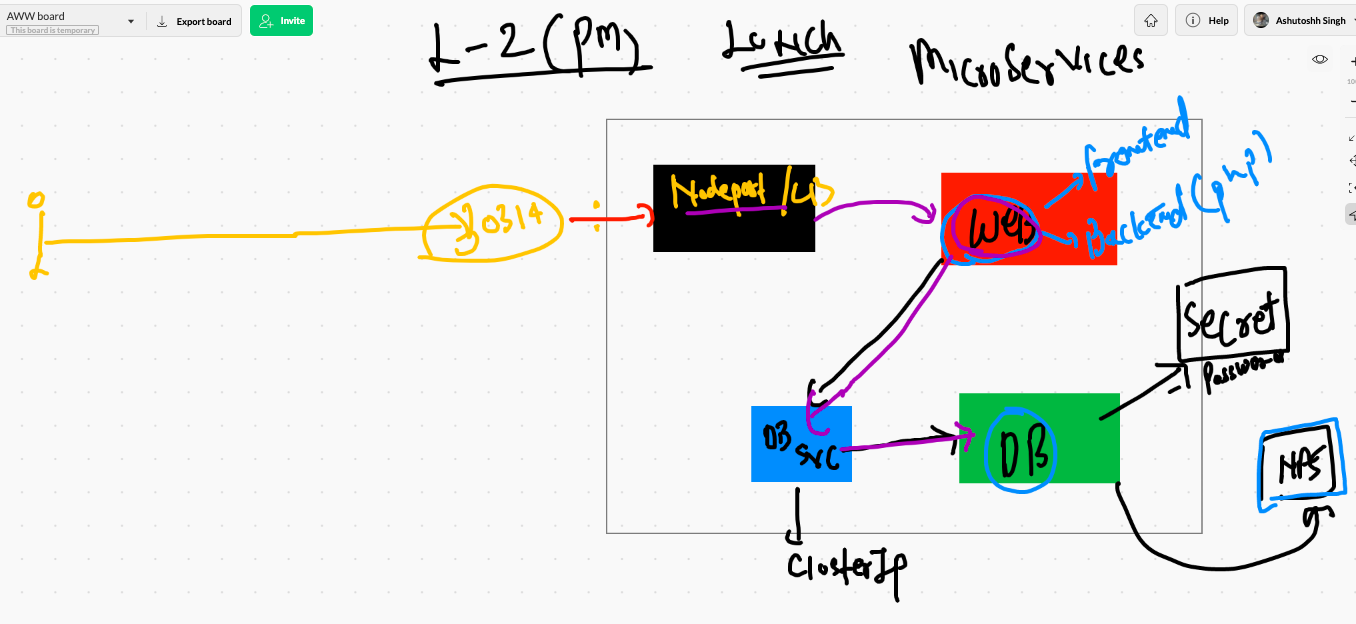 AWW board
This board is temporary
Export board
Invite
Help
Ashutoshh Singh
L-2 (PM) Lunch MicroServices
Frontend
Nodeport /
Backend (php)
30314 :
WEB
Secret
Password
DB
SVC
DB
NFS
ClosterIp